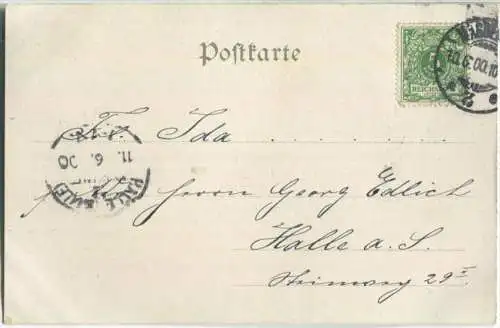 Postkarte
REICHSPOST
10.6.00
Frl. Ida
11. 6. 00
HALLE (SAALE)
Herrn Georg Edlich
Halle a. S.
Steinweg 29 I